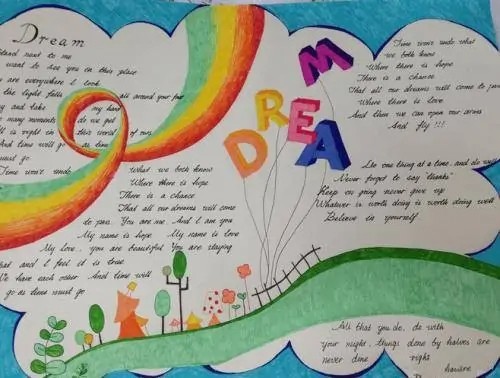 Dream
Stand next to me
want to see you in this place
are everywhere I look
the light falls all around your feet
and take my hand
many moments do we get
is right in this world of ours
And time will go as time
must go
Time won't ends what we both know
Where there is hope
There is a chance
That all our dreams will come
to pass. You are me. And I am you
My name is hope My name is love
My love, you are beautiful You are staying
that and I feel it is true
We have each other And time will
go as time must go
DREAM
Time won't ends what
we both know
Where there is hope
There is a chance
That all our dreams will come to pass
Where there is love
And then we can open our arms
And fly !!!
one thing at a time, and do
Never forget to say "thanks"
Keep on going never give up
Whatever is worth doing is worth doing well
Believe in yourself
All that you do, do with
your might, things done by halves are
never done right